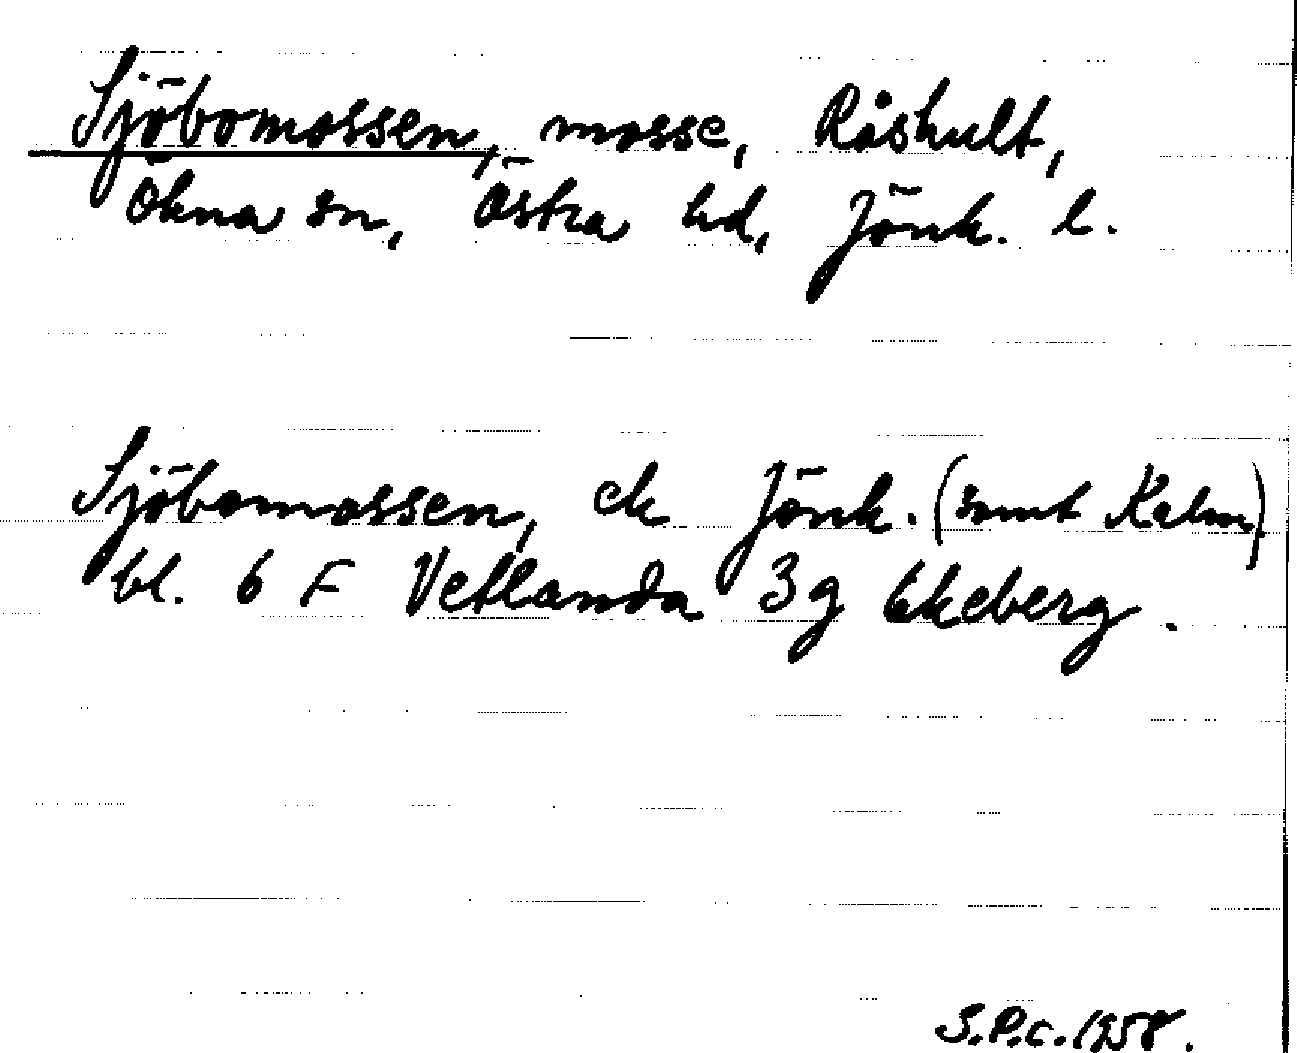 Sjöbomossen, mosse, Råshult,
Ökna sn, Östra hd, Jönk. l.
Sjöbomossen, ek Jönk. (samt Kalm)
bl. 6 F Vetlanda 3 g Ekeberg.
S.P.c. 1958.